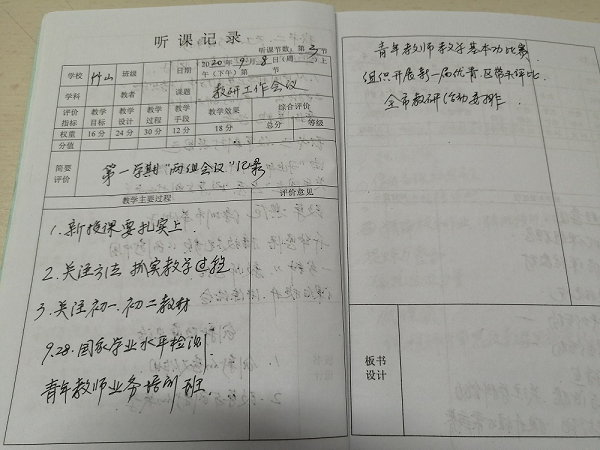 听课记录
听课节数：第3节
学校 竹山 班级 日期 2020年9月8日(周二)上
午(下午)第 节
学科 教者 课题 教研工作会议
评价指标 教学目标 教学设计 教学过程 教学手段 教学效果 综合评价
权重 16分 24分 30分 12分 18分 总分 等级
分值
简要评价 第一学期"两组会议"记录
教学主要过程 评价意见
1.新授课要扎实上.
2.关注方法 抓实教学过程
3.关注初一.初二教材
9.28.国家学业水平检测:
青年教师业务培训班.
青年教师教学基本功比赛
组织开展新一届优青 区带手评比
全市教研活动安排.
板书
设计